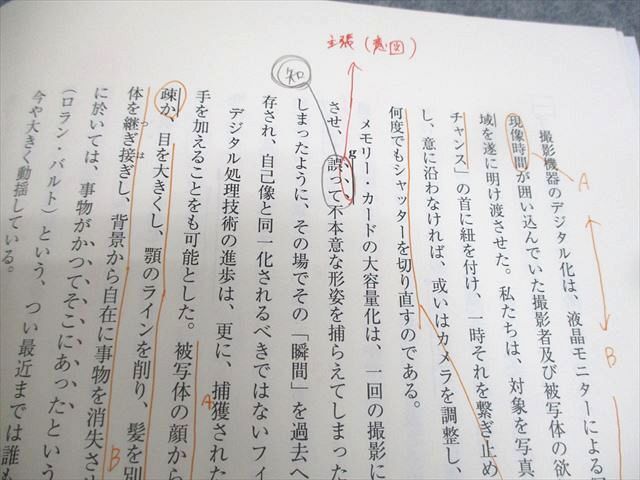 主張(意図)
知
撮影機器のデジタル化は、液晶モニターによる
現像時間が囲い込んでいた撮影者及び被写体の欲
域を遂に明け渡させた。私たちは、対象を写真
チャンス」の首に紐を付け、一時それを繋ぎ止め
し、意に沿わなければ、或いはカメラを調整し、
何度でもシャッターを切り直すのである。
メモリー・カードの大容量化は、一回の撮影に
させ、誤って不本意な形姿を捕らえてしまった
が、
しまったように、その場でその「瞬間」を過去へ
存され、自己像と同一化されるべきではないフィ
デジタル処理技術の進歩は、更に、捕獲された
手を加えることをも可能とした。被写体の顔から
疎か、目を大きくし、顎のラインを削り、髪を別
体を継ぎ接ぎし、背景から自在に事物を消失させ
つ は
に於いては、事物がかつてそこにあったという
(ロラン・バルト)という、つい最近までは誰も
今や大きく動揺している。
A
B
A
B